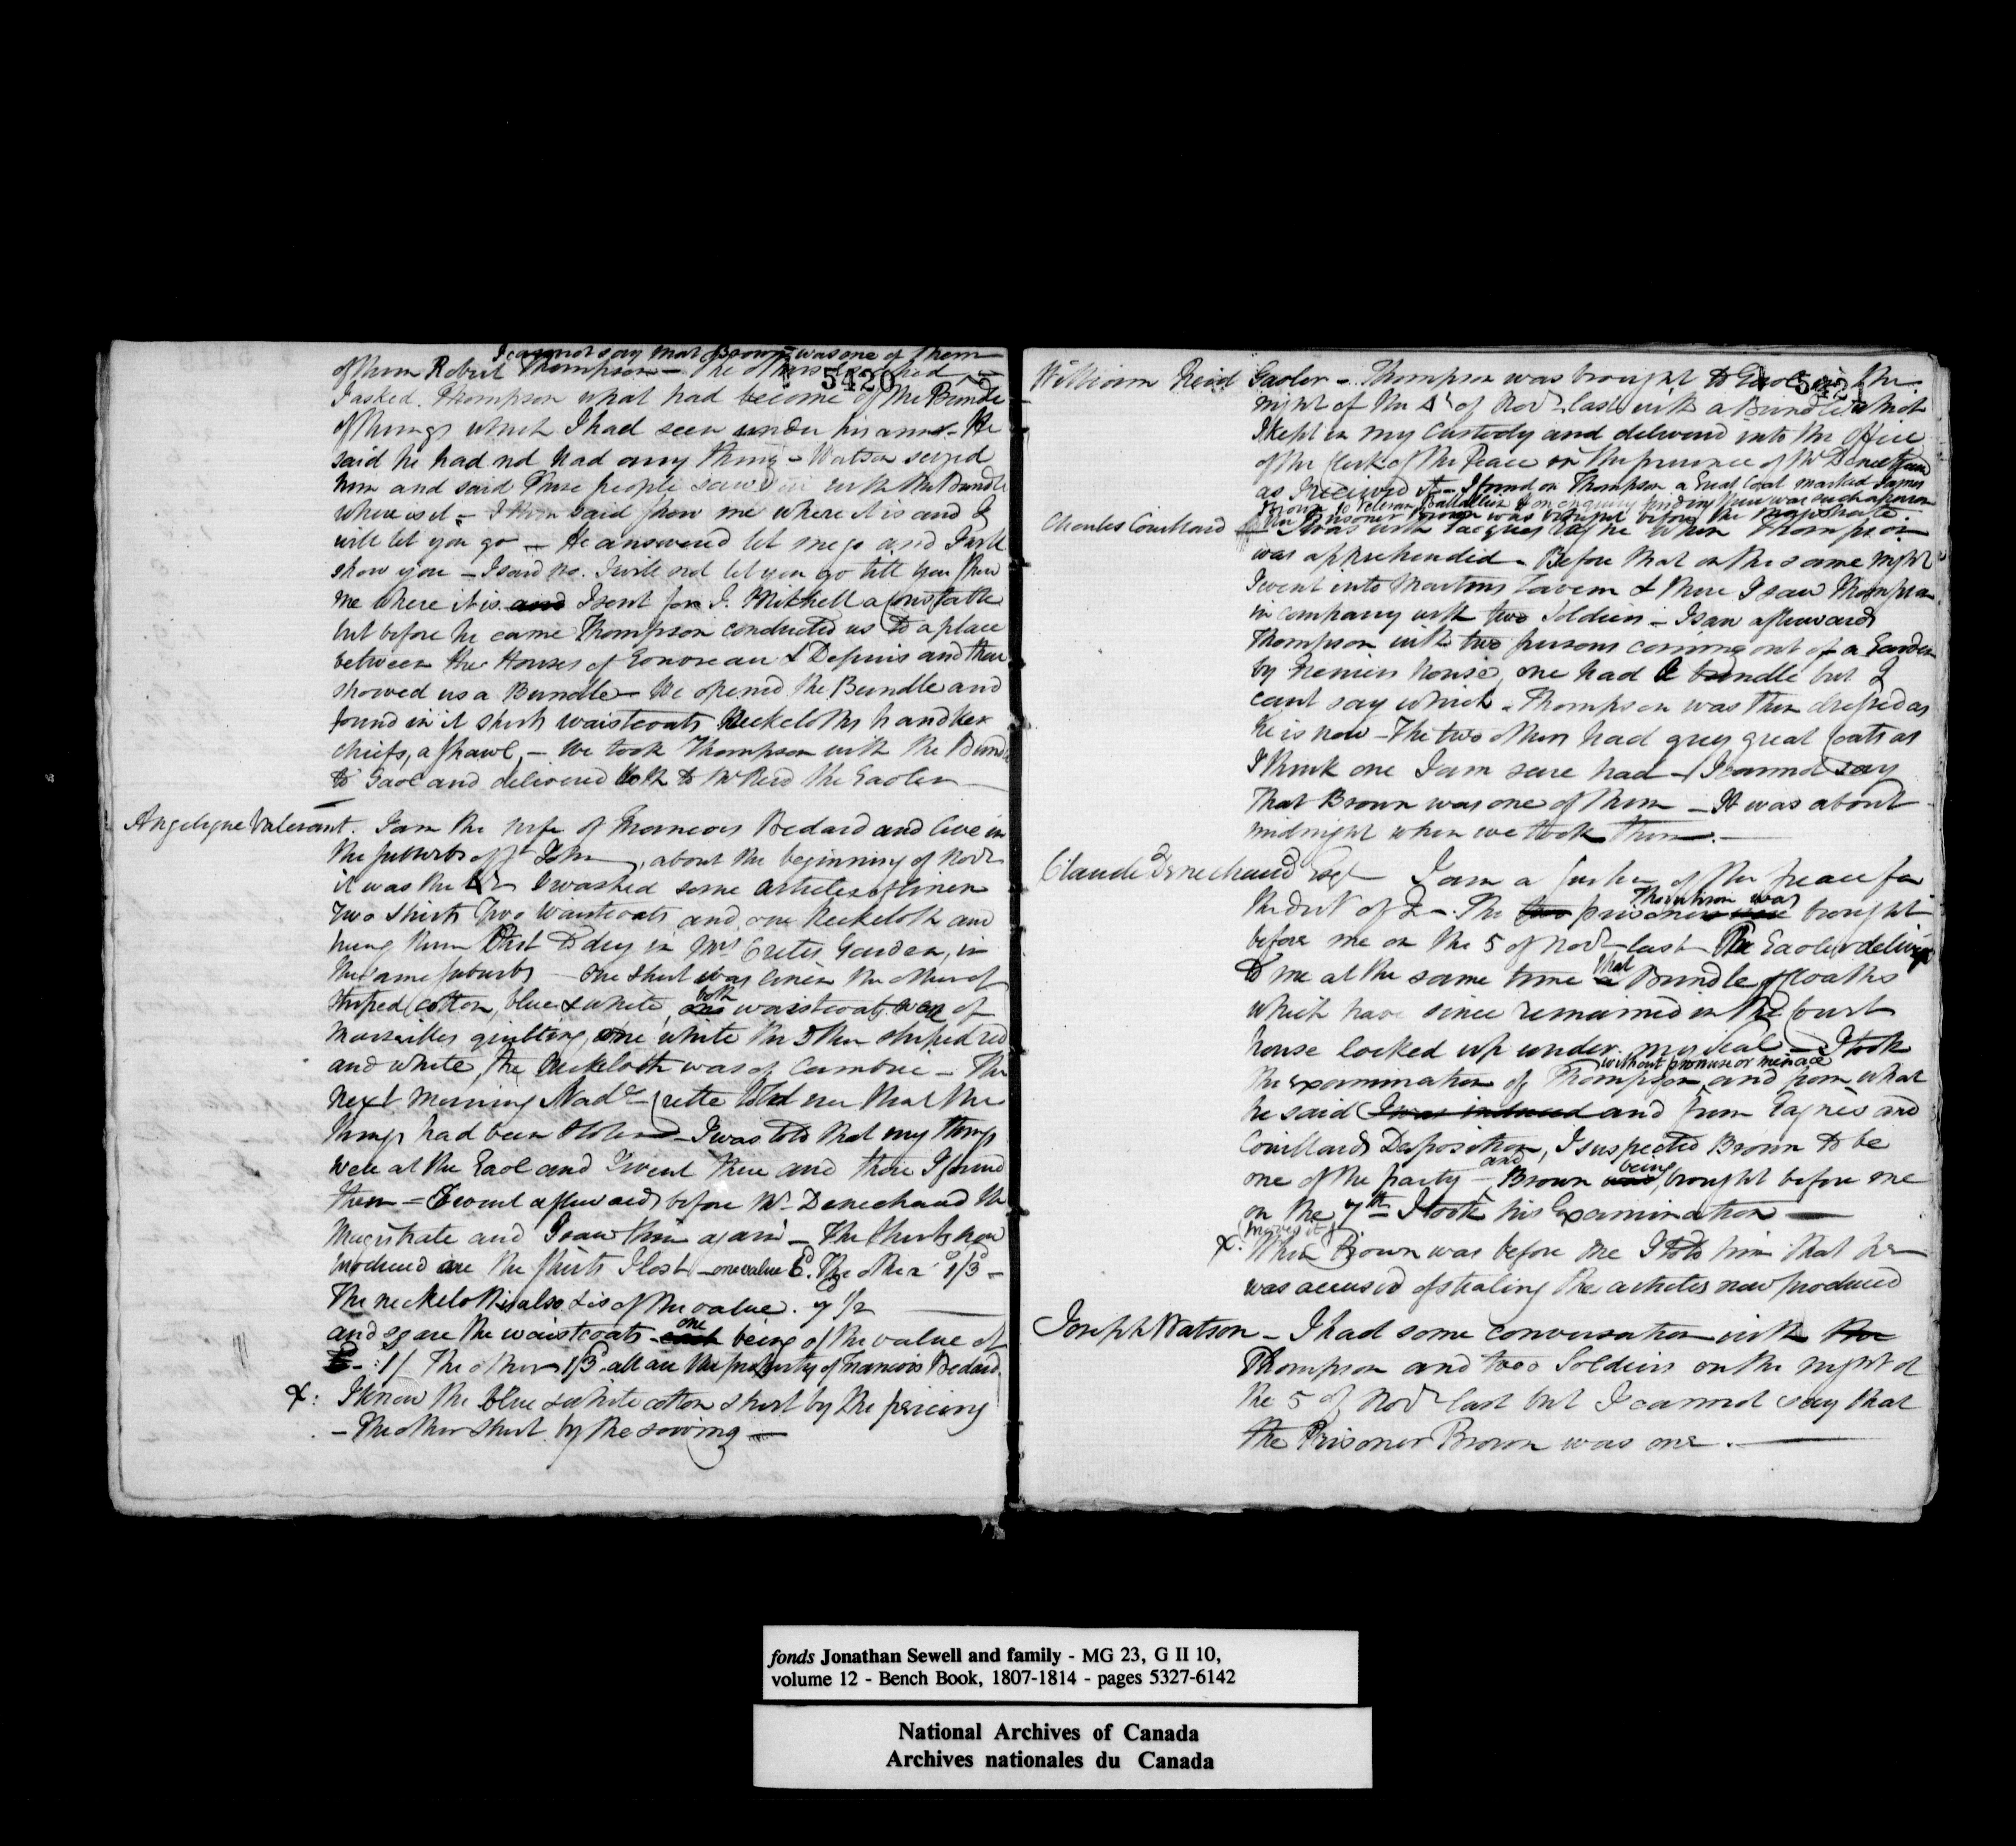 I cannot say that Brown was one of them
of them Robert Thompson – The others escaped
5420
I asked Thompson what had become of the Bundle
of things which I had seen under his arms – He
said he had not had any thing – Watson seized
him and said These people saw with the Bundle
where is it – I then said show me where it is and I
will let you go – He answered let me go and I will
show you – I said no. I will not let you go till you show
me where it is and I sent for J. Mitchell a Constable
but before he came Thompson conducted us to a place
between the Houses of & Dupuis and there
showed us a Bundle – We opened the Bundle and
found in it shirts waistcoats Neckcloths handker
chiefs, a shawl, – We took Thompson with the Bundle
to Gaol and delivered both to Mr Reid the Gaoler –
Angelique Valerant. I am the wife of Francois Bedard and live in
the suburbs of St John, about the beginning of Novr
it was the 4 I washed some articles of linen
Two shirts Two Waistcoats and one Neckcloth and
hung them out to dry in Mrs Cretes Garden, in
the same suburbs – One shirt was linen the other of
striped Cotton, blue & white, both waistcoats were of
Marseilles quilting, one white the other striped red
and white, the Neckcloth was of Cambric – The
next morning Made Crette told me that the
things had been stolen – I was told that my things
were at the Gaol and I went there and there I found
them = I went afterwards before Mr Denechaud the
Magistrate and I saw them again – The shirts now
produced are the shirts I lost – one value 6d. The other 1/3 –
The neckcloth is also & is of the value of 1/2
and so are the waistcoats – each one being of the value of
1/ The other 1/3 all are the property of Francois Bedard.
x: I know the blue & white cotton shirt by the piecing
– The other shirt by the sewing –
William Reid Gaoler – Thompson was brought to Gaol in the
5421
night of the 4th of Novr last with a Bundle which
I kept in my Custody and delivered into the Office
of the Clerk of the Peace in the presence of Mr Denechaud
as I received it – I found on Thompson a Great Coat marked James
Brown 10 Veteran Battalion & on enquiry finding there was such a person
the Prisoner Brown was brought before the Magistrate
Charles Couillard I was with Jacques Gagné when Thompson
was apprehended – Before that on the same night
I went into Martins Tavern & there I saw Thompson
in company with two Soldiers – I saw afterwards
Thompson with two persons coming out of a Garden
by house, one had a bundle but I
cant say which – Thompson was then dressed as
he is now – The two others had grey great Coats as
I think one I am sure had – I cannot say
that Brown was one of them – It was about
midnight when we took them –
Claude Denechaud Esqr – I am a Justice of the peace for
the Dist of Q –. The two prisoners were Thompson was brought
before me on the 5 of Novr last The Gaoler delivered
to me at the same time a that Bundle of Cloaths
which have since remained in the Court
house locked up under my seal – I took
the Examination of Thompson without promise or menace and from what
he said I was induced and from Gagnés and
Couillards Deposition, I suspected Brown to be
one of the party – and Brown was being brought before me
on the 7th I took his Examination –
x: When Brown was before me I told him that he
was accused of stealing the articles now produced
Joseph Watson – I had some conversation with the
Thompson and two Soldiers on the night of
the 5 of Novr last but I cannot say that
the Prisoner Brown was one. –
fonds Jonathan Sewell and family - MG 23, G II 10,
volume 12 - Bench Book, 1807-1814 - pages 5327-6142
National Archives of Canada
Archives nationales du Canada